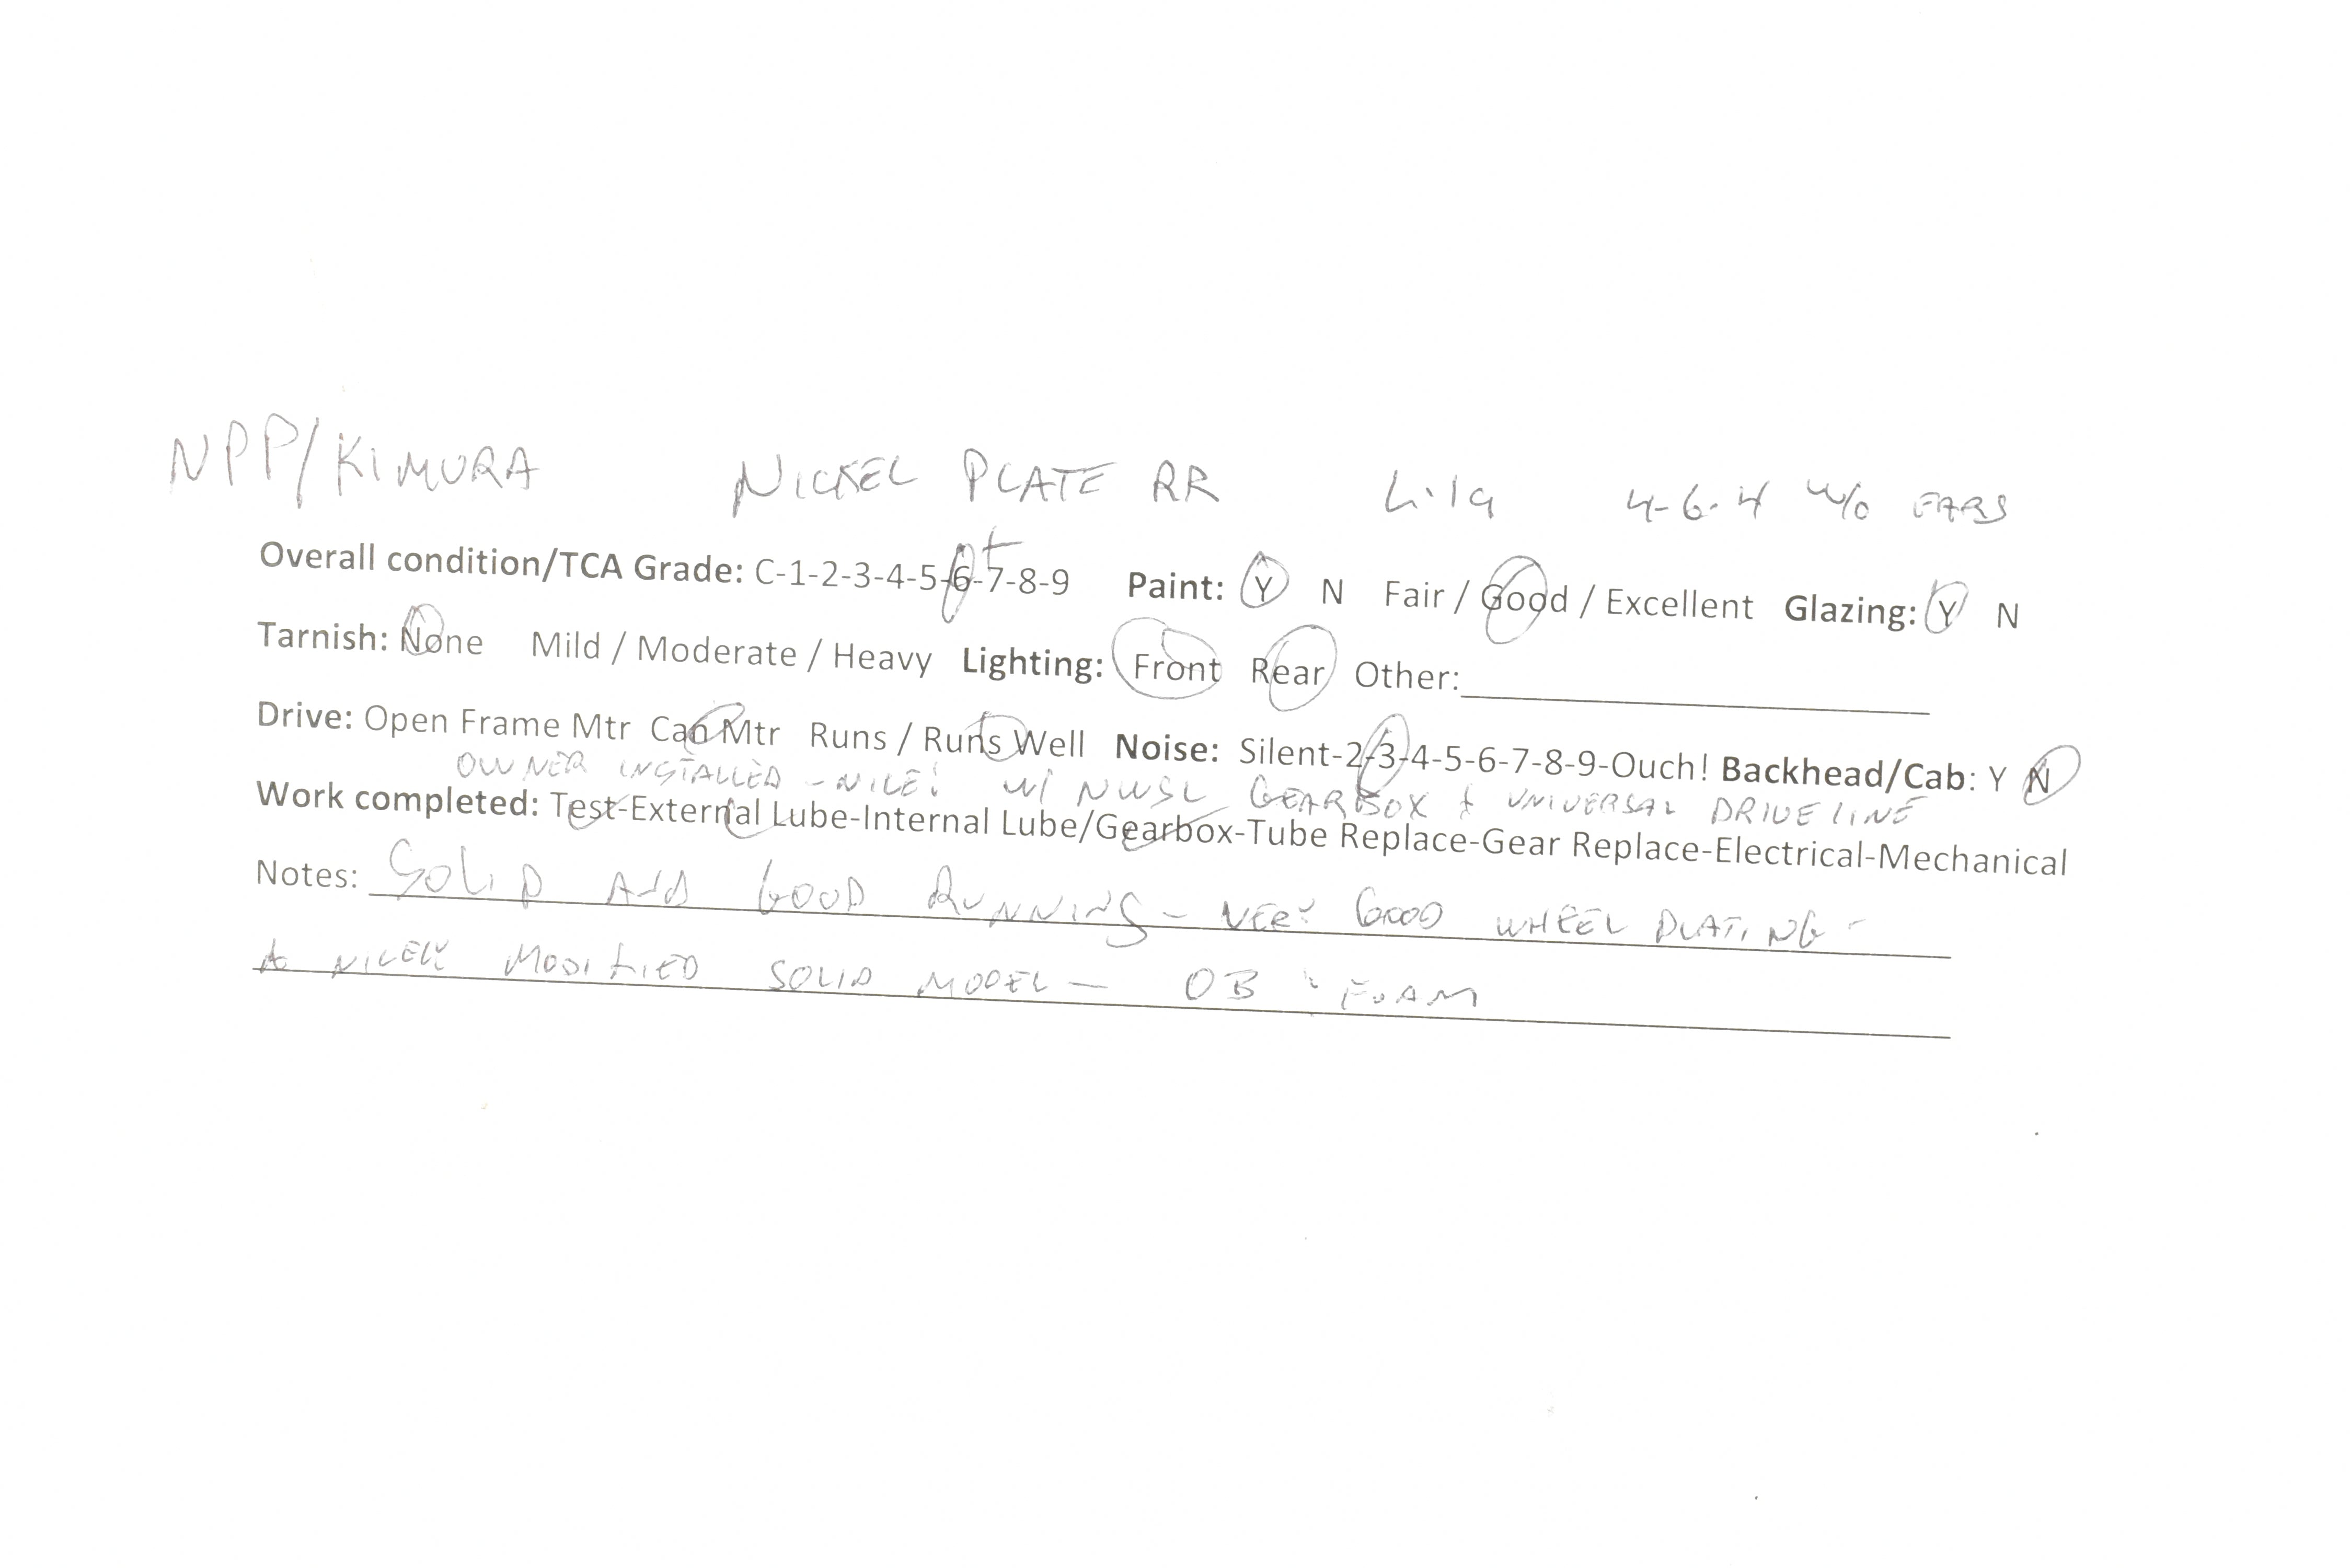 NPP/KIMURA NICKEL PLATE RR L-1a 4-6-4 W/o EARS
Overall condition/TCA Grade: C-1-2-3-4-5-6-7-8-9 + Paint: Y N Fair / Good / Excellent Glazing: Y N
Tarnish: None Mild / Moderate / Heavy Lighting: Front Rear Other:
Drive: Open Frame Mtr Can Mtr Runs / Runs Well Noise: Silent-2-3-4-5-6-7-8-9-Ouch! Backhead/Cab: Y N
OWNER INSTALLED - NICE! W/ NWSL GEARBOX & UNIVERSAL DRIVELINE
Work completed: Test-External Lube-Internal Lube/Gearbox-Tube Replace-Gear Replace-Electrical-Mechanical
Notes: SOLID AND GOOD RUNNING - VERY GOOD WHEEL PLATING -
A NICELY MODIFIED SOLID MODEL - OB FOAM